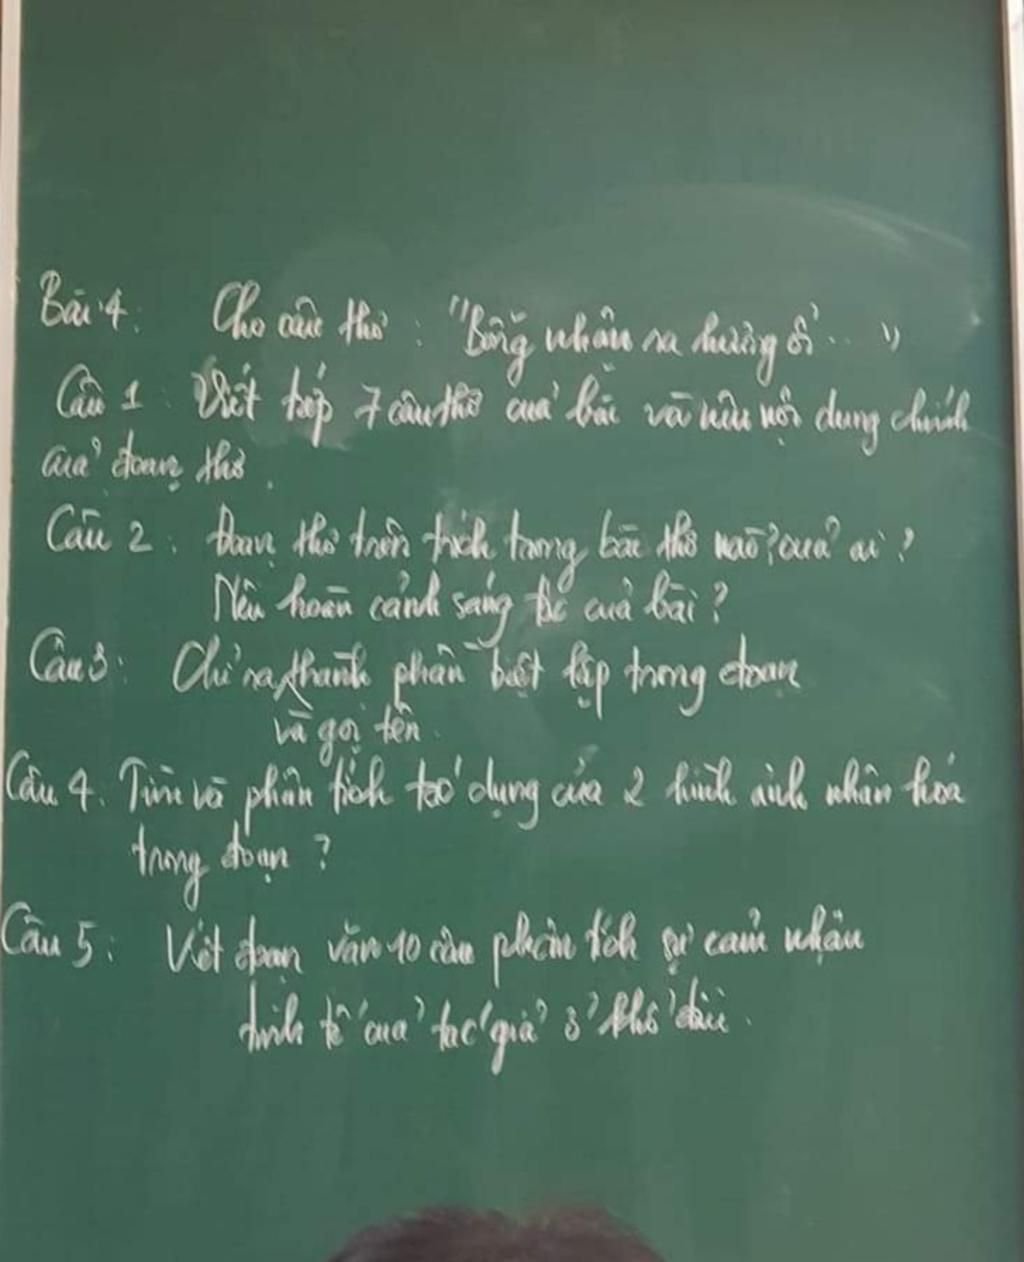 Bài 4: Cho câu thơ: "Bỗng nhận ra hương ổi... "
Câu 1: Viết tiếp 7 câu thơ của bài và nêu nội dung chính
của đoạn thơ.
Câu 2: Đoạn thơ trên trích trong bài thơ nào? của ai?
Nêu hoàn cảnh sáng tác của bài?
Câu 3: Chỉ ra thành phần biệt lập trong đoạn
và gọi tên.
Câu 4: Tìm và phân tích tác dụng của 2 hình ảnh nhân hóa
trong đoạn?
Câu 5: Viết đoạn văn 10 câu phân tích sự cảm nhận
tinh tế của tác giả ở khổ đầu.